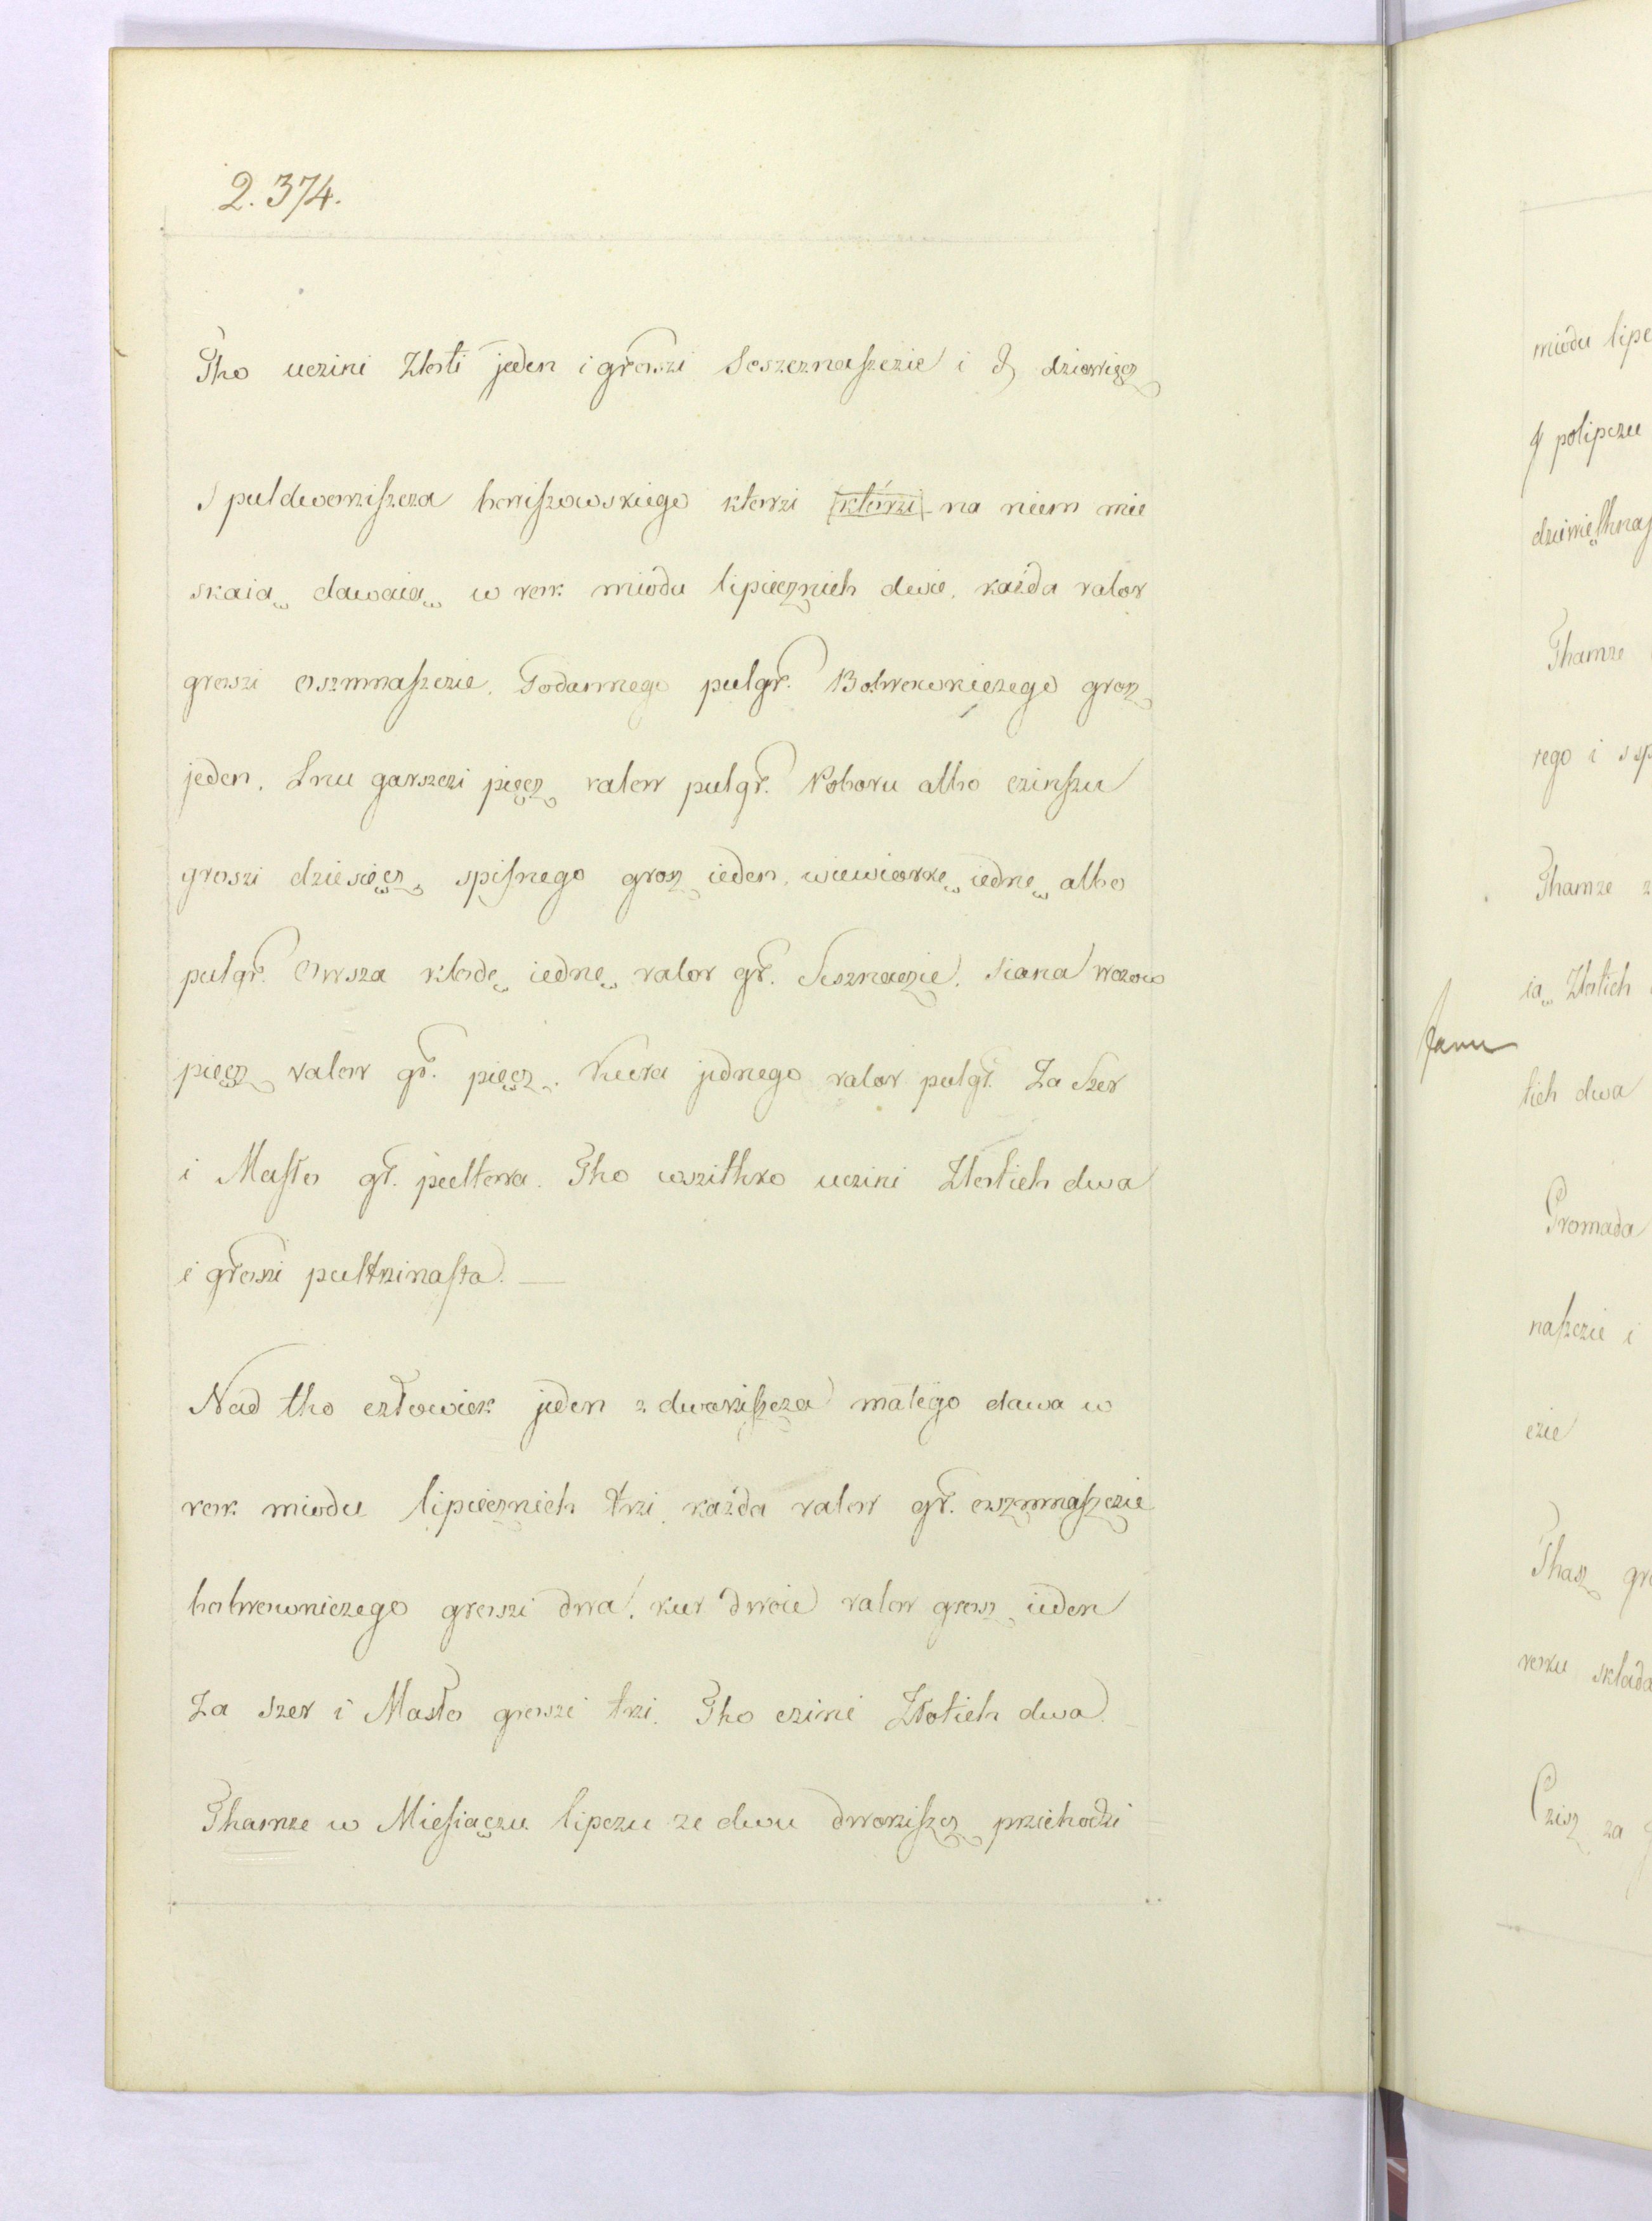 2.374.
Tho uczini Złoti jeden i groszi Seszcznaszczie i ₰ dziewięcz
S puldworziszcza horiszowskiego ktorzi ktorzi na niem mie
skaią dawaią w rok miodu lipiecznich dwie. każda valor
groszi oszmnaszczie. Godannego pulgr. Bobrowniczego grosz
jeden. Lnu garszczi pięcz valor pulgr. Poboru albo czinszu
groszi dziesięcz, spisnego grosz ieden. wiewiorkę iednę albo
pulgr. Owsza kłodę iednę valor gr. Sesznaczie. Siana wozow
pięcz valor gr. pięcz. Kura jednego valor pulgr. Za Szer
i Masło gr. pultora. Tho wszithko uczini Złotich dwa
i groszi pultrzinasta. —
Nad tho człowiek jeden z dworziszcza małego dawa w
rok miodu lipiecznich trzi. każda valor gr. oszmnaszczie
bobrowniczego groszi dwa. kur dwoie valor grosz ieden
Za Szer i Masło groszi trzi. Tho czini Złotich dwa.
Thamze w Miesiączu lipczu ze dwu dworziszcz przichodzi
miodu lipc
polipczu
Thamze
rego i
Thamze z
ią Złotich
tich dwa
Gromada
naszczie i
czie
Thasz
roku składa
Czisz za